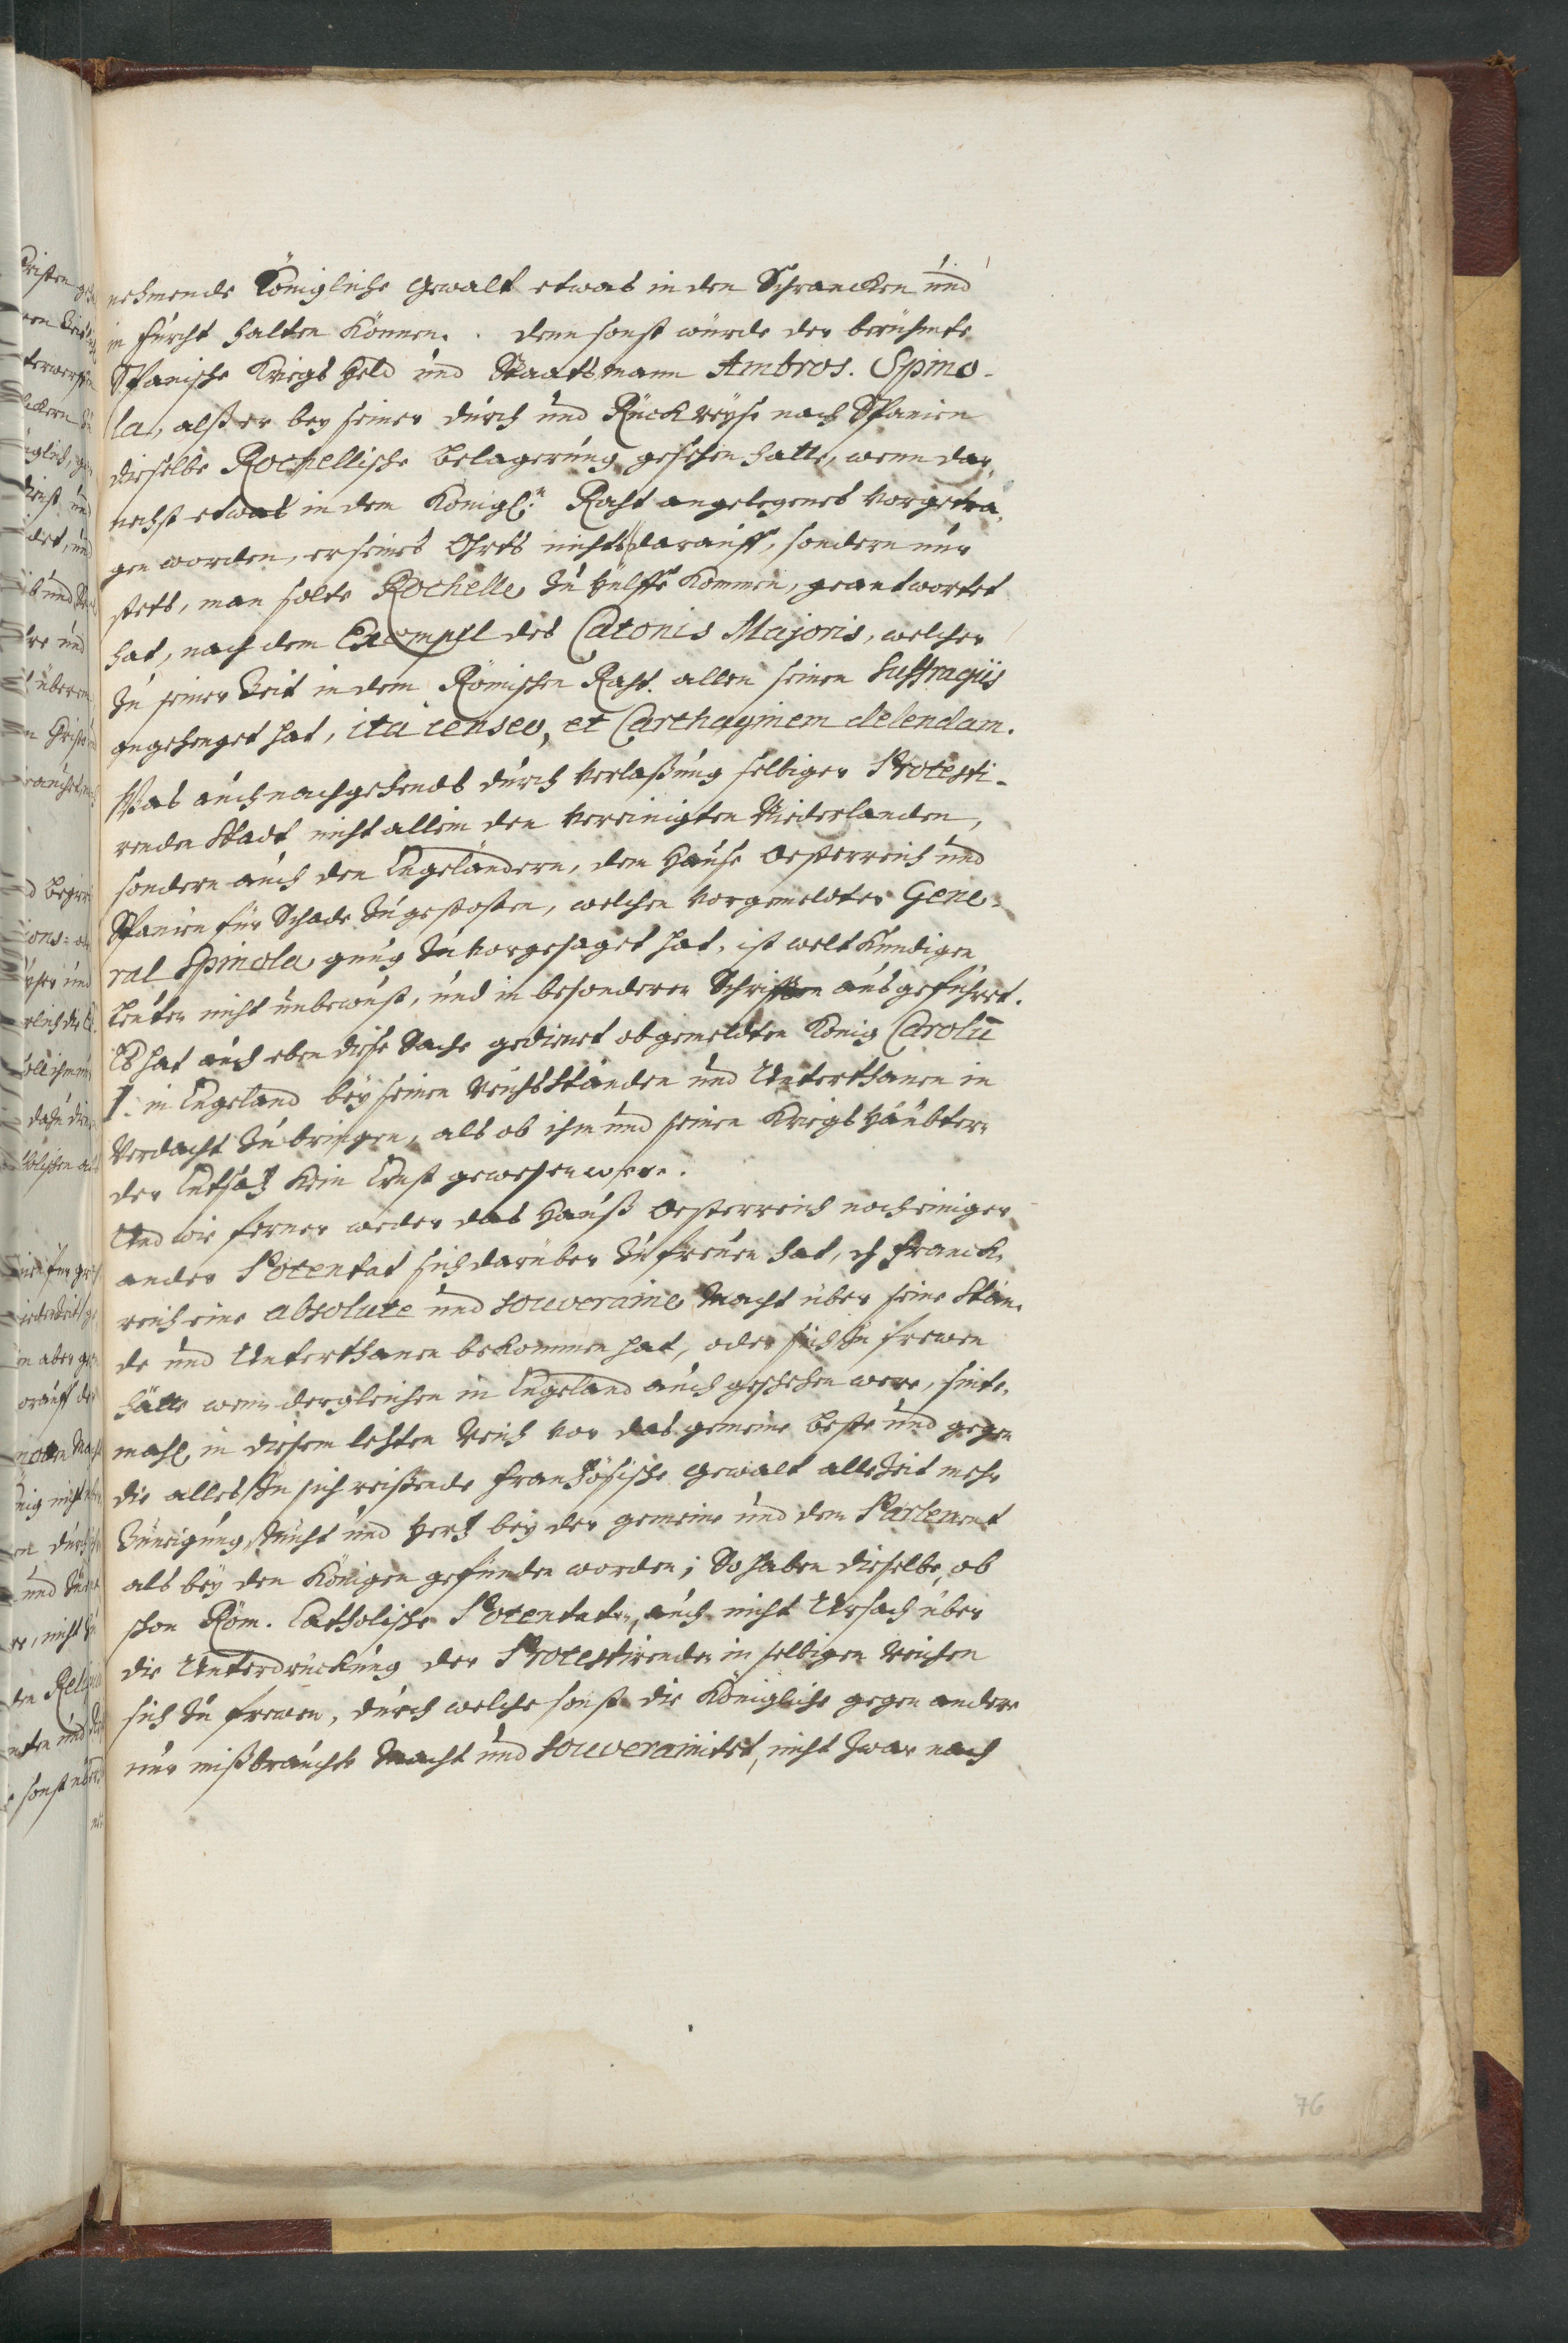 nehmende Königliche Gewalt etwas in den Schrancken und
in furcht halten können. denn sonst würde der berühmte
Spanische Kriegs Held und Staatsmann Ambros. Spino-
la, alß er bey seiner durch und Rückreyse nach Spanien
dieselbe Rochellische Belagerung gesehen hatte, wenn dar-
nechst etwas in dem Königl:n Raht angelegenes vorgetra-
gen worden, er seines Ohrts nichts darauff, sondern nur
stets, man solte Rochelle zu hülffe kommen, geantwortet
hat, nach dem Exempel des Catonis Majoris, welcher
zu seiner Zeit in dem Römischen Raht allen seinen Suffragiis
angehenget hat, ita censeo, et Carthaginem delendam.
Was auch nachgehends durch verlaßung selbiger Protesti-
renden Stadt nicht allein den vereinigten Niederlanden,
sondern auch den Engeländern, dem Hause Oesterreich und
Spanien für Schade zugestoßen, welchen vorgemeldter Gene-
ral Spinola gnug zuvorgesaget hat, ist welt kundigen
Leuten nicht unbewust, und in besonderen Schrifften ausgeführet.
Es hat auch eben diese Sache gedienet obgemeldten König Carolū
I. in Engeland bey seinen Reichs Ständen und Unterthanen in
Verdacht zu bringen, als ob ihm und seinen Kriegs Häubtern
der Entsatz kein Ernst gewesen were.
Und wie ferner weder das Hauß Oesterreich noch einiger
ander Potentat sich darüber zu freuen hat, dz Franck-
reich eine absolute und souveraine Macht über seine Stän-
de und Unterthanen bekommen hat, oder sich zu frewen
hätte wenn dergleichen in Engeland auch geschehen were, sinte-
mahl in diesem letzten Reich vor das gemeine beste und gegen
die alles zu sich reißende Frantzösische Gewalt alle Zeit mehr
Zuneigung, Zucht und Hertz bey der gemeine und dem Parlement
als bey den Königen gefunden worden; So haben dieselbe, ob
schon Röm. Catholische Potentaten, auch nicht Ursach über
die Unterdruckung der Protestirenden in selbigen Reichen
sich zu frewen, durch welche sonst die Königliche gegen andere
nur mißbrauchte Macht und Souverainitet, nicht zwar nach
76